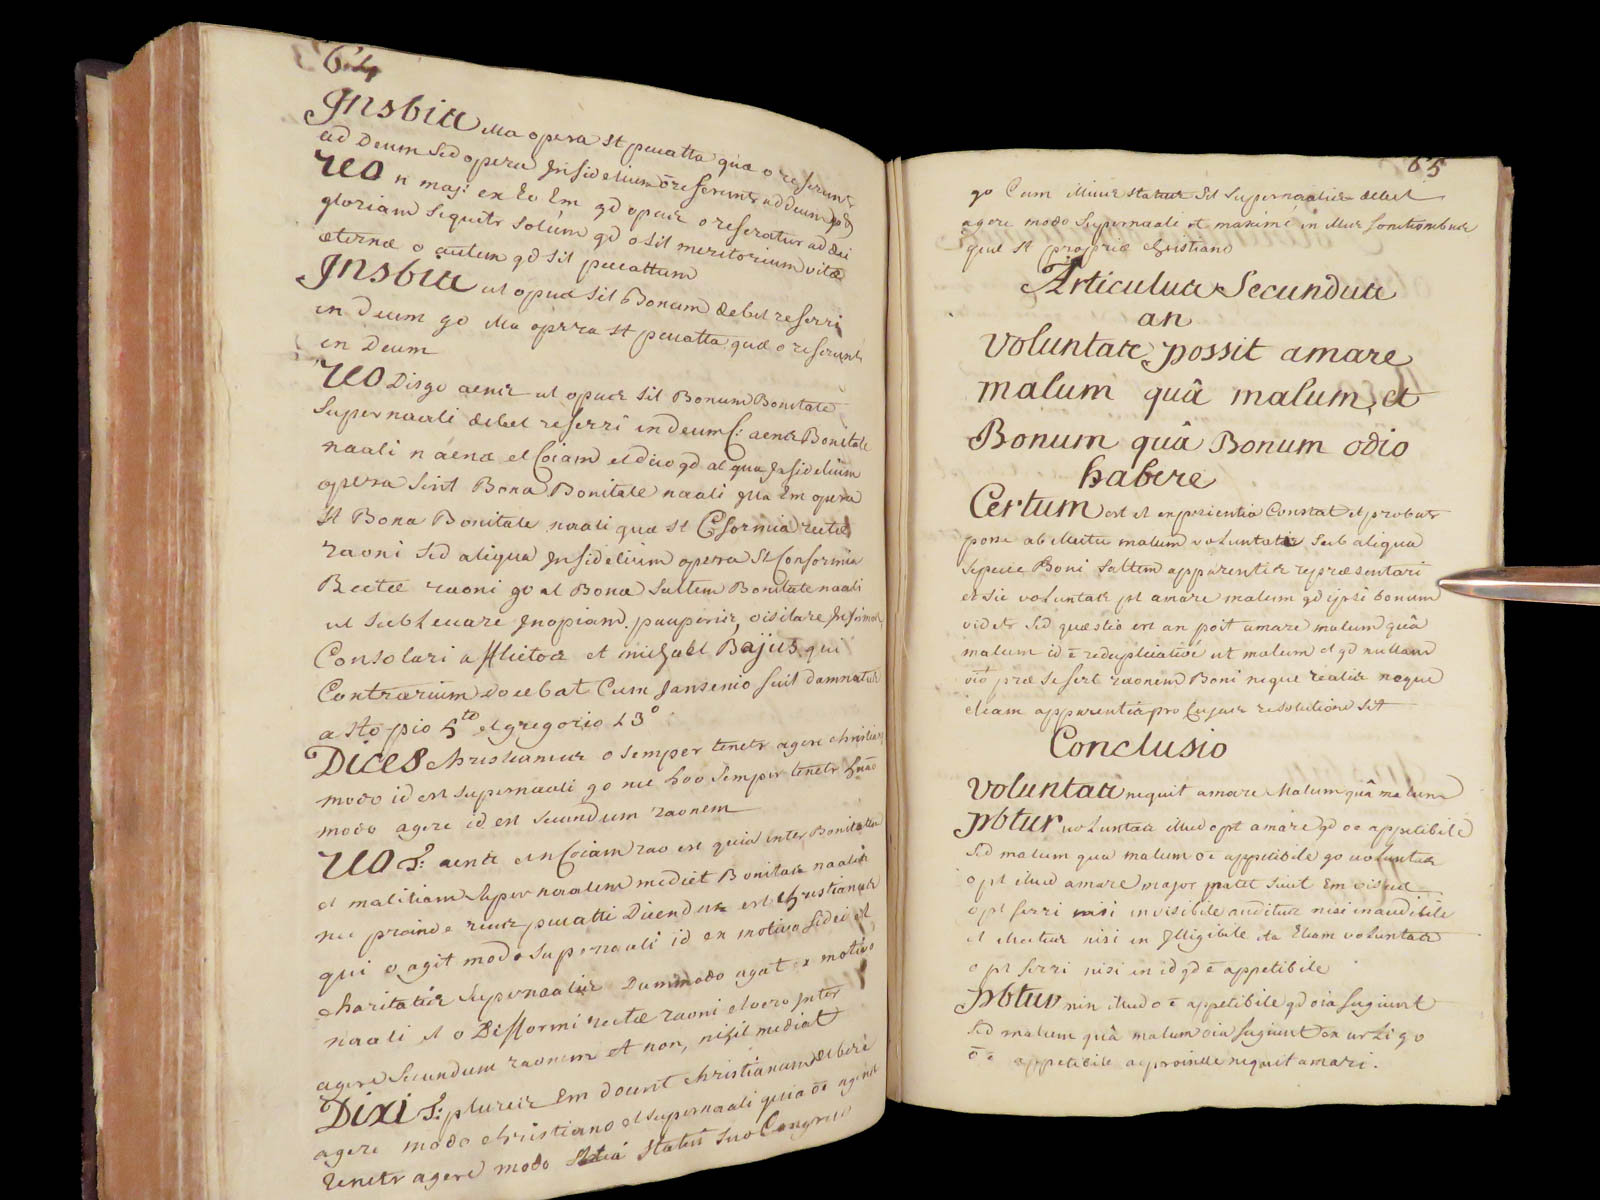 64
Insbia illa opera st peccatta quæ o referuntr
ad Deum sed opera Infidelium o referuntr ad deum
RCO n maj: ex Eo Em qd opus o referatur ad dei
gloriam sequitr solum qd o sit meritorium vitæ
æternæ o autem qd sit peccattum
Insbia ut opus sit Bonum debet referri
in Deum go illa opera st peccatta quæ o referuntr
in Deum
RCO Disgo ut opus sit Bonum Bonitate
supernaali debet referri in deum C: Bonitate
naali n et Coiam et dico qd at qua Infidelium
opera sint Bona Bonitate naali illa Em opera
st Bona Bonitate naali quæ st Cformia rectæ
raoni sed aliqua Infidelium opera st Conformia
Rectæ raoni go at Bona saltem Bonitate naali
ut subLevare Inopiam pauperis, visitare Infirmos,
Consolari afflictos et michael Bajus qui
Contrarium docebat Cum Jansenio fuit damnatus
a Sto pio 5to et gregorio 13o
DICES christianus o semper tenetr agere christiano
modo id est supernaali go nec hoo semper tenetr huāo
modo agere id est secundum raonem
RCO et n Coiam rao est quia inter Bonitatem
et malitiam supernaalem mediet Bonitas naalis
nec proinde reus peccatti Dicendus est christianus
qui o agit modo supernaali id ex motivo fidei et
charitatis supernaalis Dummodo agat ex motivo
naali et o Difformi rectæ raoni et vero Inter
agere secundum raonem et non, nihil mediat
DIXI plures Em docent christianum debere
agere modo christiano et supernaali quia
tenetr agere modo statui suo Congruo
65
go Cum illius status sit supernaalis debet
agere modo supernaali et maxime in illis fonctionibus
quæ st propriæ christiano
Articulus Secundus
an
Voluntas possit amare
malum quâ malum, et
Bonum quâ Bonum odio
habere
Certum est et experientia Constat et probatr
posse ab illectu malum voluntatis sub aliqua
specie Boni saltem apparentis repræsentari
et sic voluntas pt amare malum qd ipsi bonum
videtr sed quæstio est an posit amare malum quâ
malum id ē reduplicative ut malum et qd nullam
præ se fert raonem Boni neque realis neque
etiam apparentis pro Cujus resolutione sit
Conclusio
Voluntas nequit amare Malum quâ malum
pbtur voluntas illud o pt amare qd o e appetibile
sed malum qua malum o e appetibile go voluntas
o pt illud amare major patet sicut Em visus
o pt ferri nisi in visibile auditus nisi in audibile
et illectus nisi in Illigibile ita Etiam voluntas
o pt ferri nisi in id qd ē appetibile
pbtur min illud o ē appetibile qd oia fugiunt
sed malum quâ malum oia fugiunt go
o ē appetibile ac proinde nequit amari.